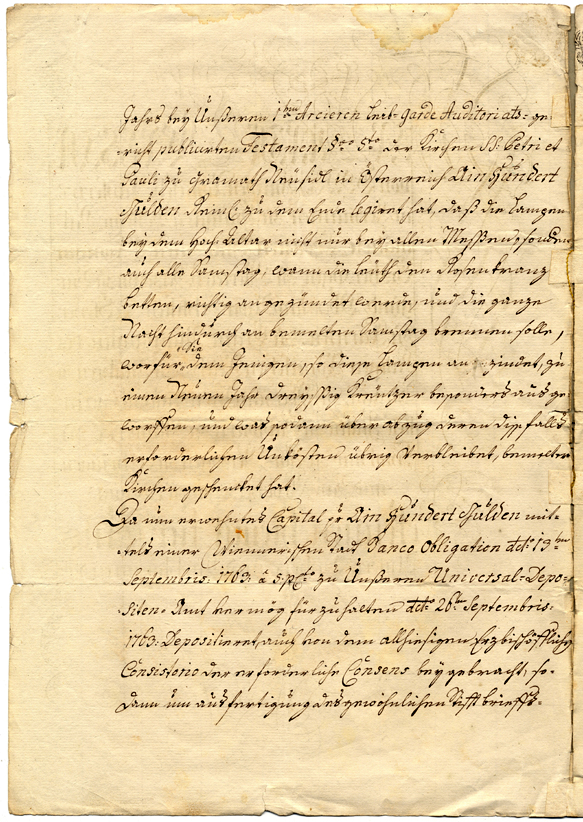 Jahrs bey Unßeren 1ten Arcieren Leib-Garde Auditoriats-ge-
richt publicirten Testament §vo 5to der Kirchen SS: Petri et
Pauli zu Gramath Neüsidl in Österreich Ain Hundert
Gulden Reinl: zu dem Ende legiret hat, daß die Lampen
bey dem Hoch Altar nicht nur bey allen Messen, sondern
auch alle Samstag, wann die leüth den Rosenkranz
betten, richtig angezündet werde, und die ganze
Nacht hindurch an bemelten Samstag brennen solle,
worfür Sie dem Jenigen, so diese Lampen anzindet, zu
einem Neuen Jahr dreyssig Kreützer besonders ausge-
worffen, und was sodann über abzug deren dißfalls
erforderlichen Unkösten übrig verbleibet, bemelter
Kirchen geschencket hat.
Da nun erwehntes Capital pr Ain Hundert Gulden mit-
tels einer Wiennerischen Stadt Banco Obligation dcto 13ten
Septembris: 1763: à 5: p Cto zu Unßeren Universal-Depo-
siten-Amt vermög fürzuhalten dcto 26ten Septembris:
1763: Depositieret, auch von dem allhiesigen Erzbischöfflichen
Consistorio der erforderliche Consens beygebracht, so-
dann um ausfertigung des gewöhnlichen Stifft brieffs-